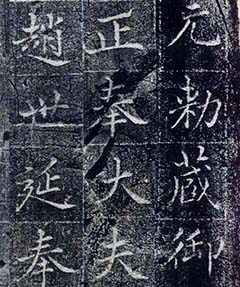 元敕藏御
正奉大夫
趙世延奉